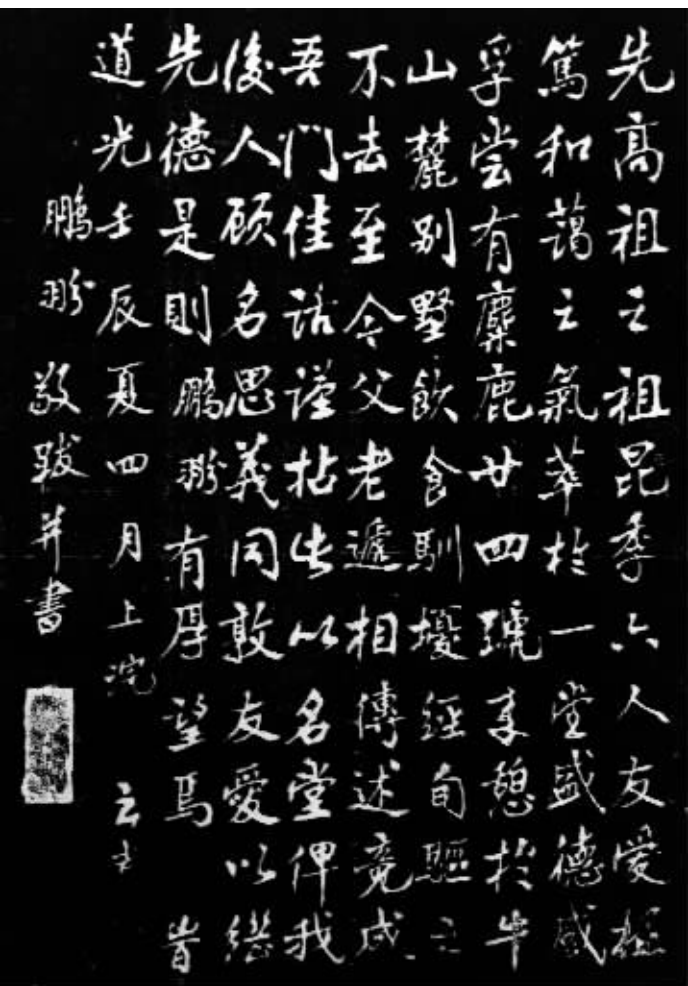 先高祖之祖昆季六人友愛極
篤和藹之氣萃於一堂盛德感
孚嘗有麋鹿廿四號來憩於牛
山麓別墅飲食馴擾經旬驅之
不去至今父老遞相傳述竟成
吾門佳話謹拈出以名堂俾我
後人顧名思義同敦友愛以繼
先德是則鵬翂有厚望焉 旹
道光壬辰夏四月上浣 云
鵬翂敬跋并書